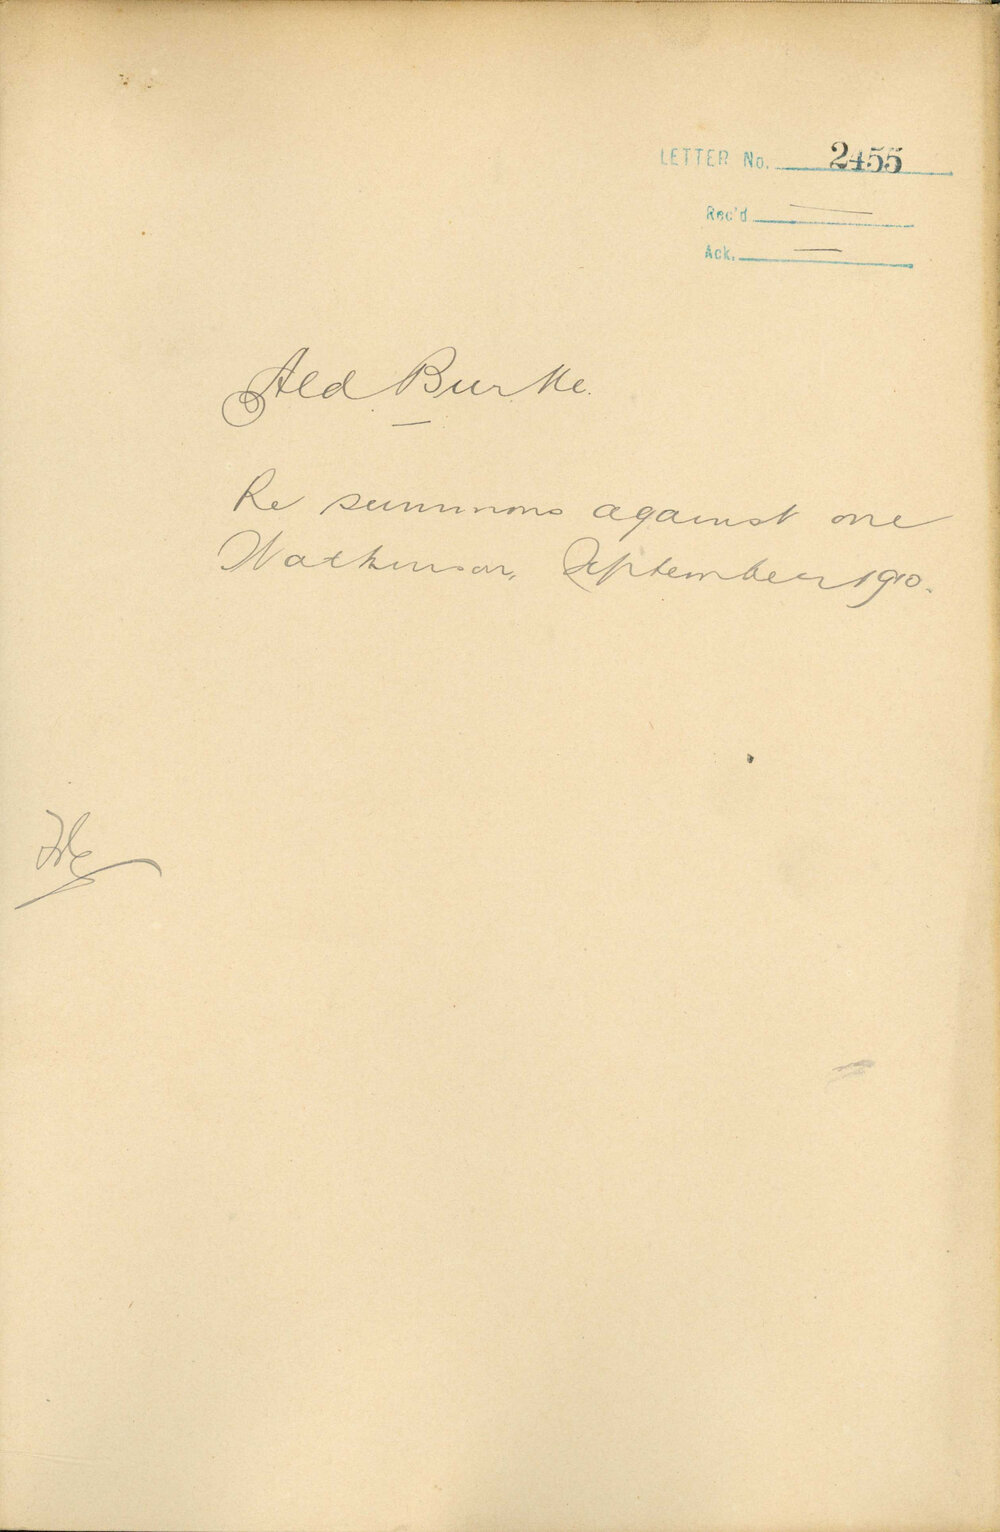 LETTER No. 2455
Rec'd —
Ack. —
Ald Burke.
Re summons against one
Watkinson, September 1910.